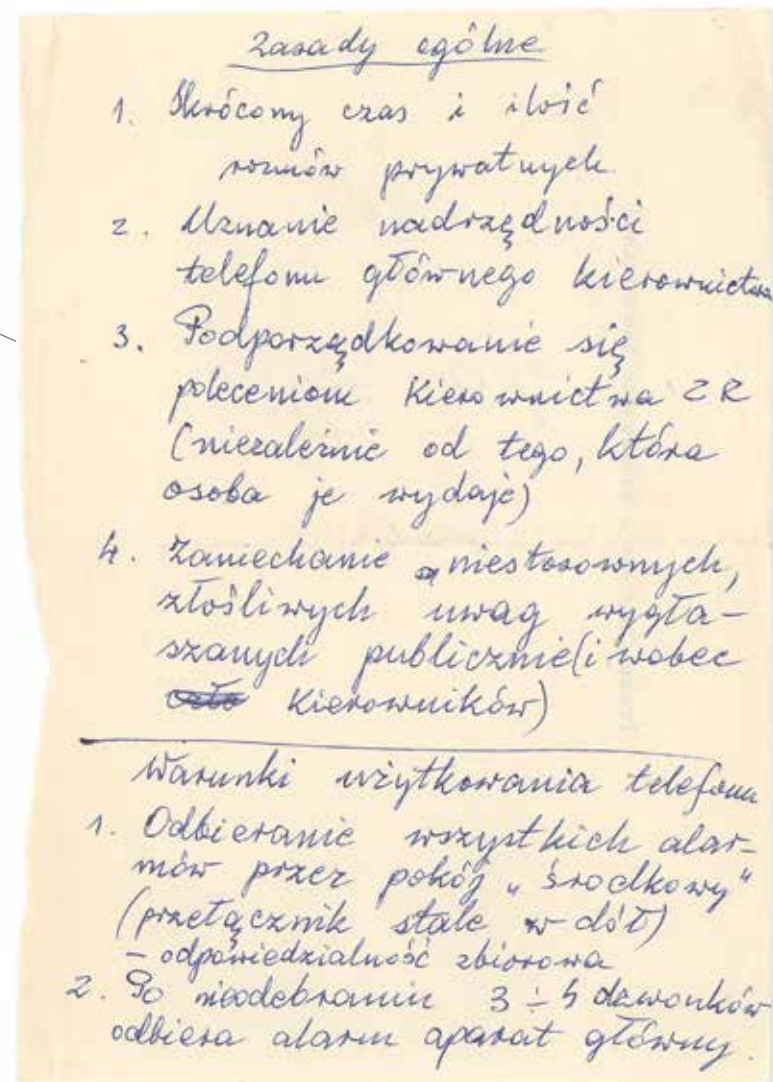 Zasady ogólne
1. Skrócony czas i ilość
rozmów prywatnych.
2. Uznanie nadrzędności
telefonu głównego kierownictwa
3. Podporządkowanie się
poleceniom Kierownictwa ZR
(niezależnie od tego, która
osoba je wydaje)
4. Zaniechanie niestosownych,
złośliwych uwag wygła-
szanych publicznie (i wobec
Kierowników)
Warunki użytkowania telefonu
1. Odbieranie wszystkich alar-
mów przez pokój „środkowy"
(przełącznik stale w dół)
- odpowiedzialność zbiorowa
2. Po nieodebraniu 3 ÷ 4 dzwonków
odbiera alarm aparat główny.